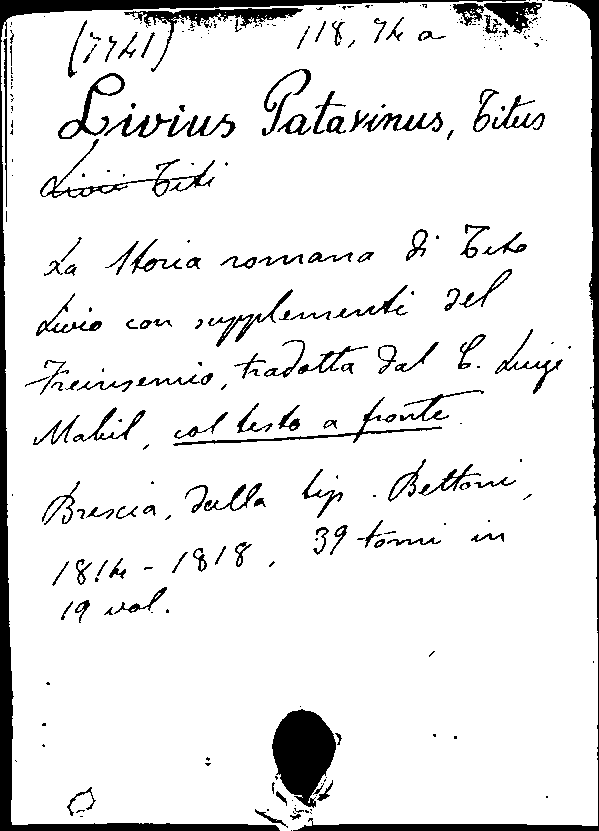 (7741) 118, 74 a
Livius Patavinus, Titus
Livii Titi
La Storia romana di Tito
Livio con supplementi del
Freinsemio, tradotta dal C. Luigi
Mabil, col testo a fronte.
Brescia, dalla tip. Bettoni,
1814-1818, 39 tomi in
19 vol.